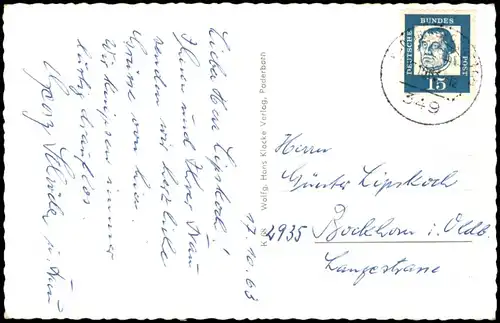 17.10.63
Liebe Herr Lipskoch!
Ihnen und Ihrer Frau
senden wir herzliche
Grüsse von hier.
Wir knipsen immer
lustig drauf los.
u. Frau
K 88 Wolfg. Hans Klocke Verlag, Paderborn
DEUTSCHE BUNDES POST
15
349
Herrn
Günter Lipskoch
2935 Bockhorn i. Oldb.
Langestrasse